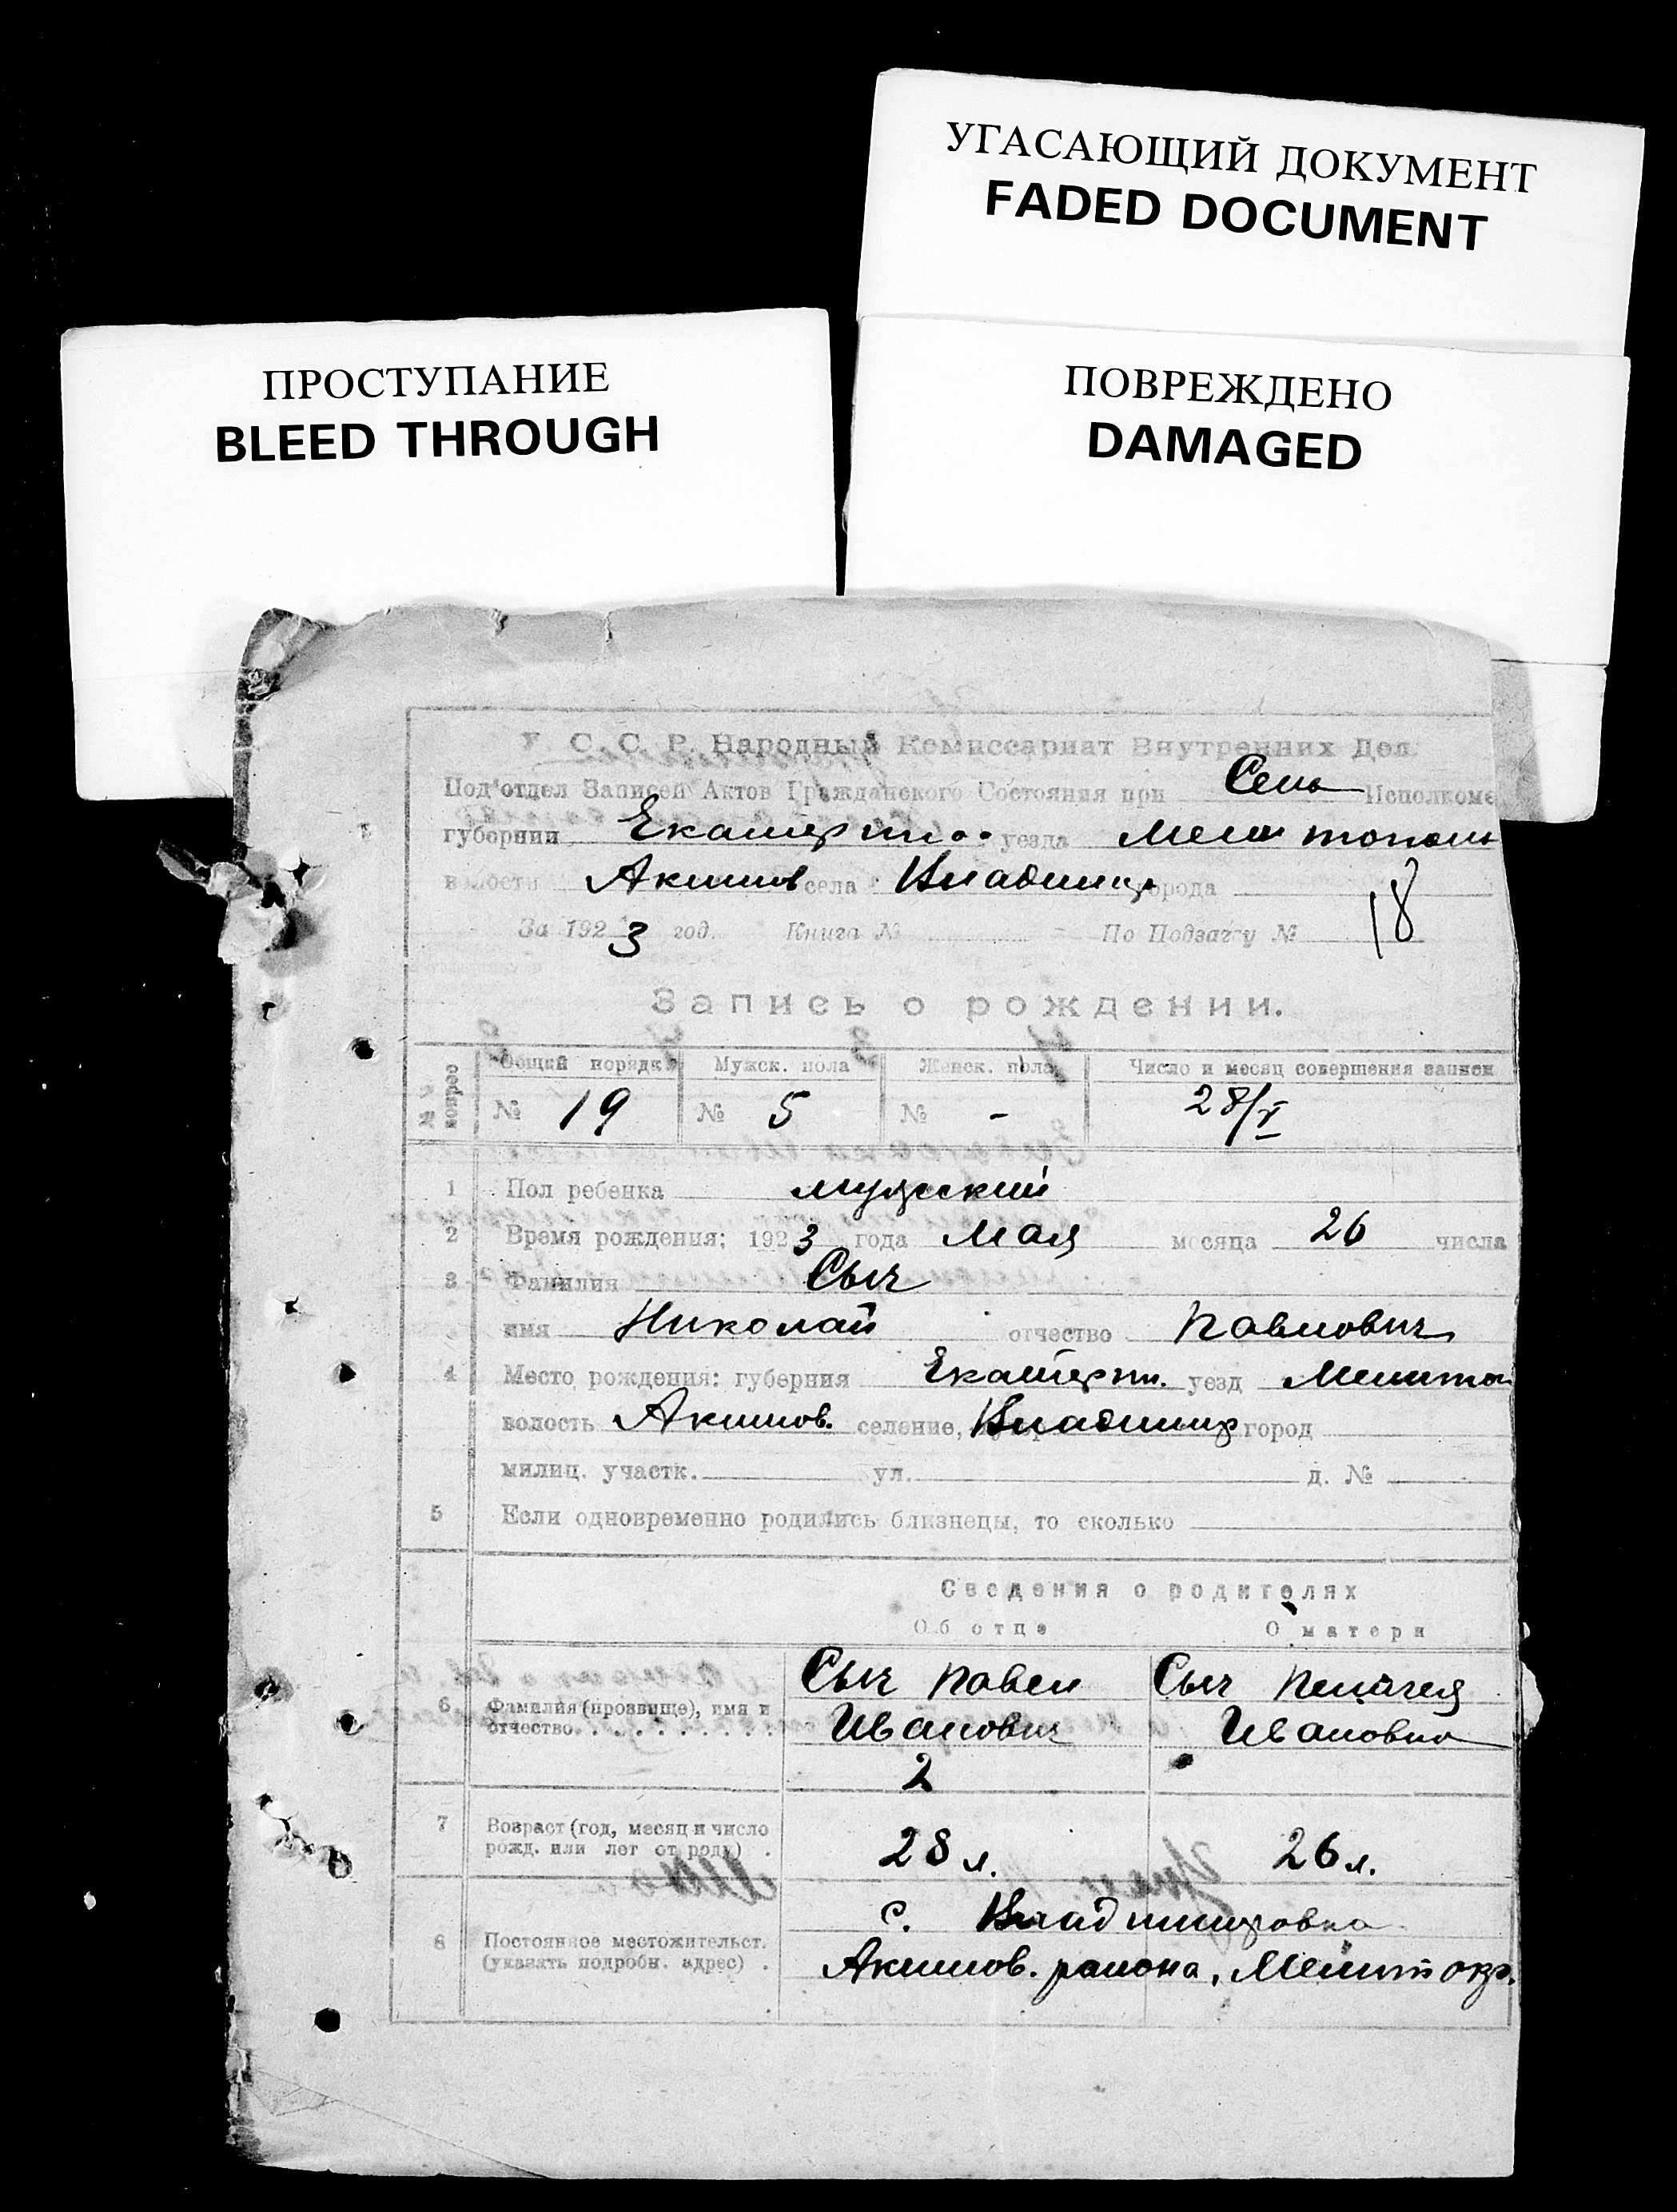 УГАСАЮЩИЙ ДОКУМЕНТ
FADED DOCUMENT
ПРОСТУПАНИЕ
BLEED THROUGH
ПОВРЕЖДЕНО
DAMAGED
У. С. С. Р. Народный Комиссариат Внутренних Дел
Под'отдел Записей Актов Гражданского Состояния при Сель Исполкоме
губернии Екатерин. уезда Мелитополь
волости Акимов села Владимир города
За 1923 год. Книга № По Подзагсу № 18
Запись о рождении.
№№ вопрос Общий порядк. Мужск. пола Женск. пола Число и месяц совершения записи
№ 19 № 5 № - 28/V
1 Пол ребенка мужеский
2 Время рождения: 1923 года Мая месяца 26 числа
3 Фамилия Сыч
имя Николай отчество Павлович
4 Место рождения: губерния Екатерин. уезд Мелитоп
волость Акимов. селение, Владимир город
милиц. участк. ул. д. №
5 Если одновременно родились близнецы, то сколько
Сведения о родителях
Об отце О матери
6 Фамилия (прозвище), имя и отчество. Сыч Павел Сыч Пелагея
Иванович Ивановна
2
7 Возраст (год, месяц и число рожд. или лет от роду) . 28 л. 26 л.
8 Постоянное местожительст. (указать подробн. адрес) . с. Владимировка
Акимов. района, Мелит окр.